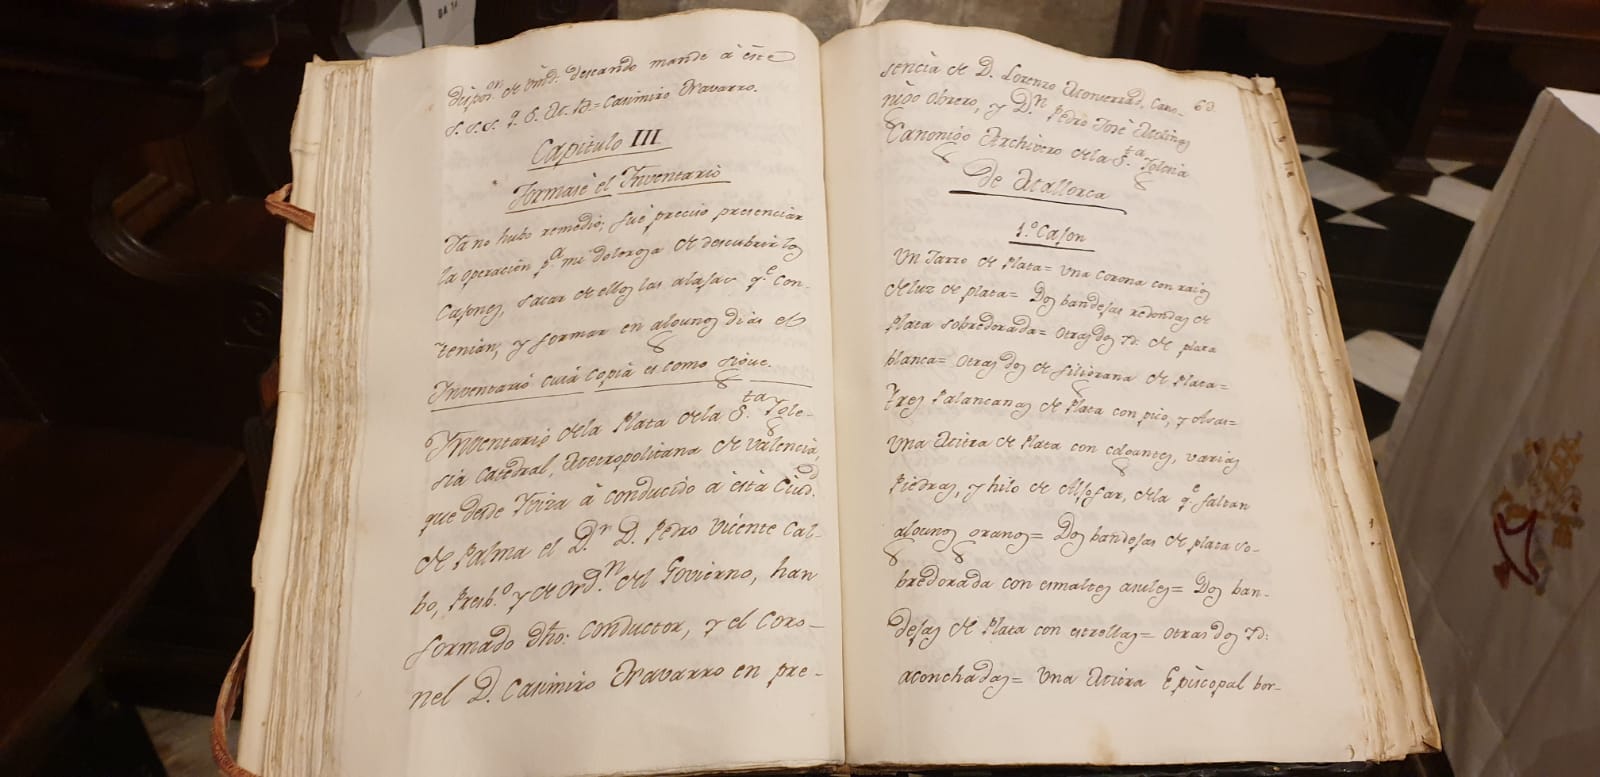 dispon. de Vmd. deseando mande à èste
S. S. S. Q. S. M. B.= Casimiro Navarro.
Capitulo III
Formase èl Ynventario
Ya no hubo remedio; fuè preciso presenciar
la operacion pa. mi dolorosa de descubrir los
Caxones, sacar de ellos las alajas qe. con-
tenian, y formar en algunos dias el
Ynventario cuià copia es como sigue.
Ynventario de la Plata de la Sta. Ygle-
sia Catedral, Metropolitana de Valencia,
que desde Yviza à conducido à èsta Ciud.
de Palma el Dr. D. Pedro Vicente Cal-
bo, Presb.o y de Ordn. del Govierno, han
formado dho: conductor, y el Coro-
nel D. Casimiro Navarro en pre-
sencia de D. Lorenzo Monserrad, Cano-
nigo Obrero, y Dn. Pedro Josè Molines
Canonigo Archivero de la Sta. Yglesia
De Mallorca
1.o Cajon
Un Jarro de Plata= Una Corona con raios
de luz de plata= Dos bandejas redondas de
Plata sobredorada= Otras dos Yd: de plata
blanca= Otras dos de filigrana de Plata=
Tres Palancanas de Plata con pico, y Asas=
Una Mitra de Plata con colgantes, varias
Piedras, y hilo de Aljofar, de la qe. faltan
algunos granos= Dos bandejas de plata so-
bredorada con esmaltes asules= Dos ban-
dejas de Plata con estrellas= Otras dos Yd:
aconchadas= Una Mitra Episcopal bor-